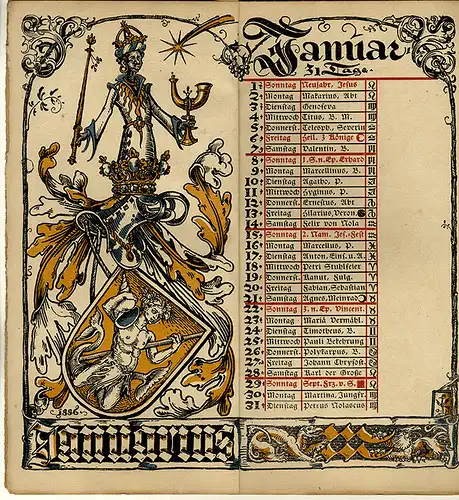 Januar
31 Tage.
1 Sonntag Neujahr, Jesus
2 Montag Makarius, Abt
3 Dienstag Genofeva
4 Mittwoch Titus, B. M.
5 Donnerst. Telesph., Severin
6 Freitag Heil. 3 Könige
7 Samstag Valentin, B.
8 Sonntag 1. S. n. Ep. Erhard
9 Montag Marcellinus, B.
10 Dienstag Agatho, P.
11 Mittwoch Hyginus, P.
12 Donnerst. Ernestus, Abt
13 Freitag Hilarius, Veron.
14 Samstag Felix von Nola
15 Sonntag 2. Nam. Jes.-Fest
16 Montag Marcellus, P.
17 Dienstag Anton, Eins. u. A.
18 Mittwoch Petri Stuhlfeier
19 Donnerst. Kanut, Fulg.
20 Freitag Fabian, Sebastian
21 Samstag Agnes, Meinrad
22 Sonntag 3. n. Ep. Vincent.
23 Montag Mariä Vermähl.
24 Dienstag Timotheus, B.
25 Mittwoch Pauli Bekehrung
26 Donnerst. Polykarpus, B.
27 Freitag Johann Chrysost.
28 Samstag Karl der Große
29 Sonntag Sept. Frz. v. S.
30 Montag Martina, Jungfr.
31 Dienstag Petrus Nolascus
1886
Januarius